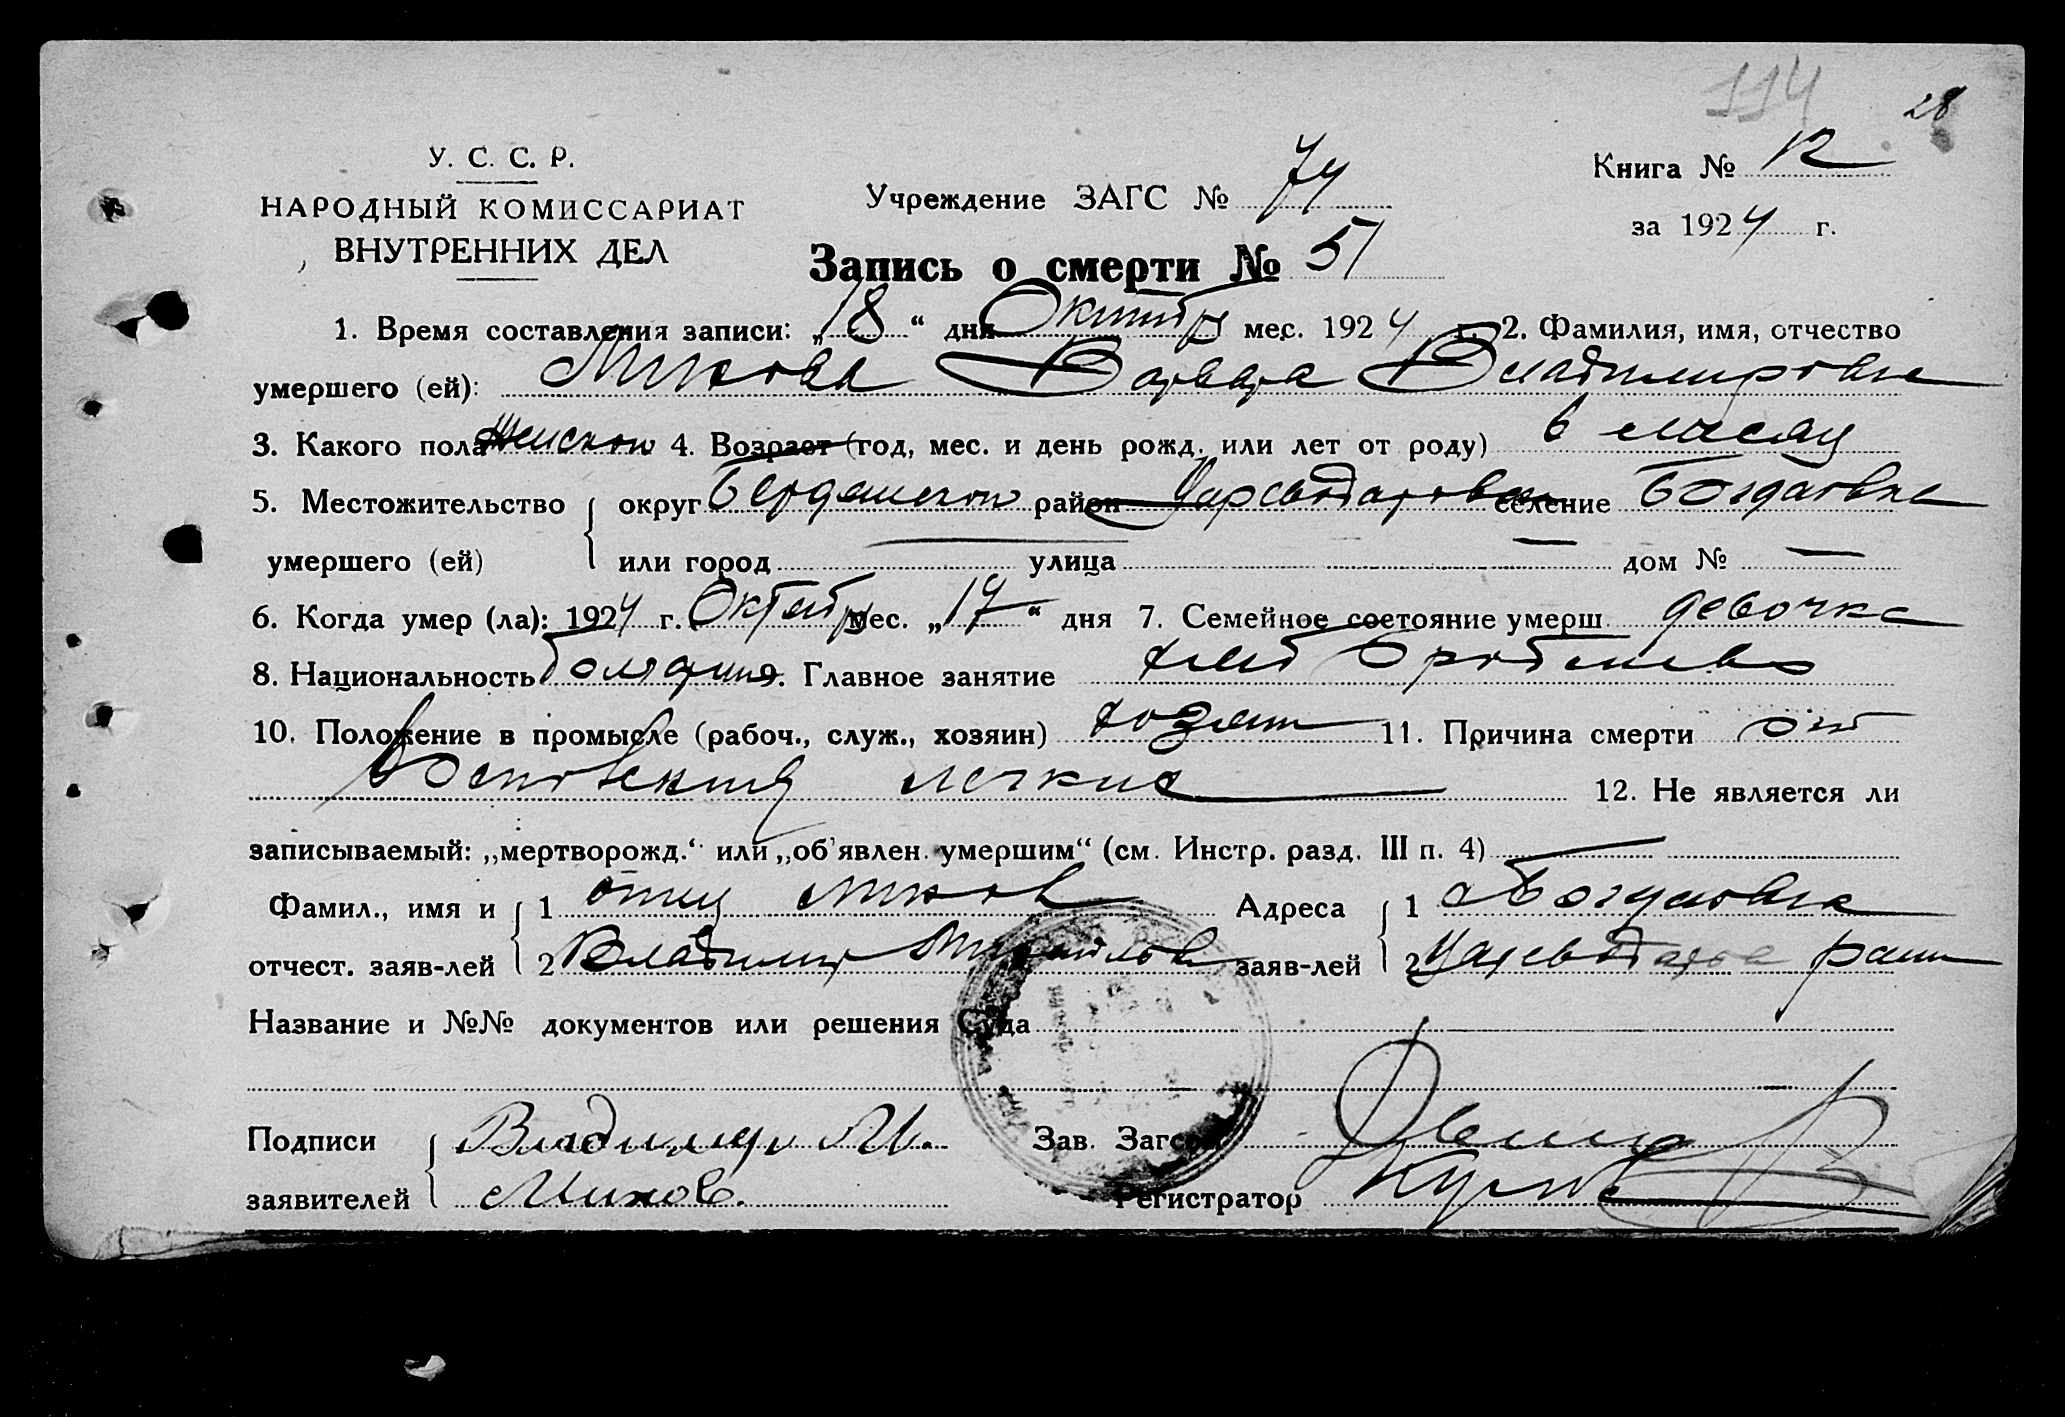 114
28
У. С. С. Р.
НАРОДНЫЙ КОМИССАРИАТ
ВНУТРЕННИХ ДЕЛ
Учреждение ЗАГС № 74
Книга № 12
за 1924 г.
Запись о смерти № 51
1. Время составления записи: „18“ дня Октября мес. 1924 г. 2. Фамилия, имя, отчество
умершего (ей): Минова Варвара Владимировна
3. Какого пола женского 4. Возраст (год, мес. и день рожд. или лет от роду) 6 месяц
5. Местожительство округ Бердянского район Царедаровск селение Богдановка
умершего (ей) или город — улица — дом № —
6. Когда умер (ла): 1924 г. Октября мес. „17“ дня 7. Семейное состояние умерш. девочка
8. Национальность болгарин 9. Главное занятие хлеборобство
10. Положение в промысле (рабоч., служ., хозяин) хозяин 11. Причина смерти от
легких 12. Не является ли
записываемый: „мертворожд.“ или „об'явлен. умершим“ (см. Инстр. разд. III п. 4) —
Фамил., имя и 1 отец Минов Адреса 1 Богдановка
отчест. заяв-лей 2 Владимир Михайлов заяв-лей 2 район
Название и №№ документов или решения Суда
Подписи Владимир М. Зав. Загсом
заявителей Минов. Регистратор